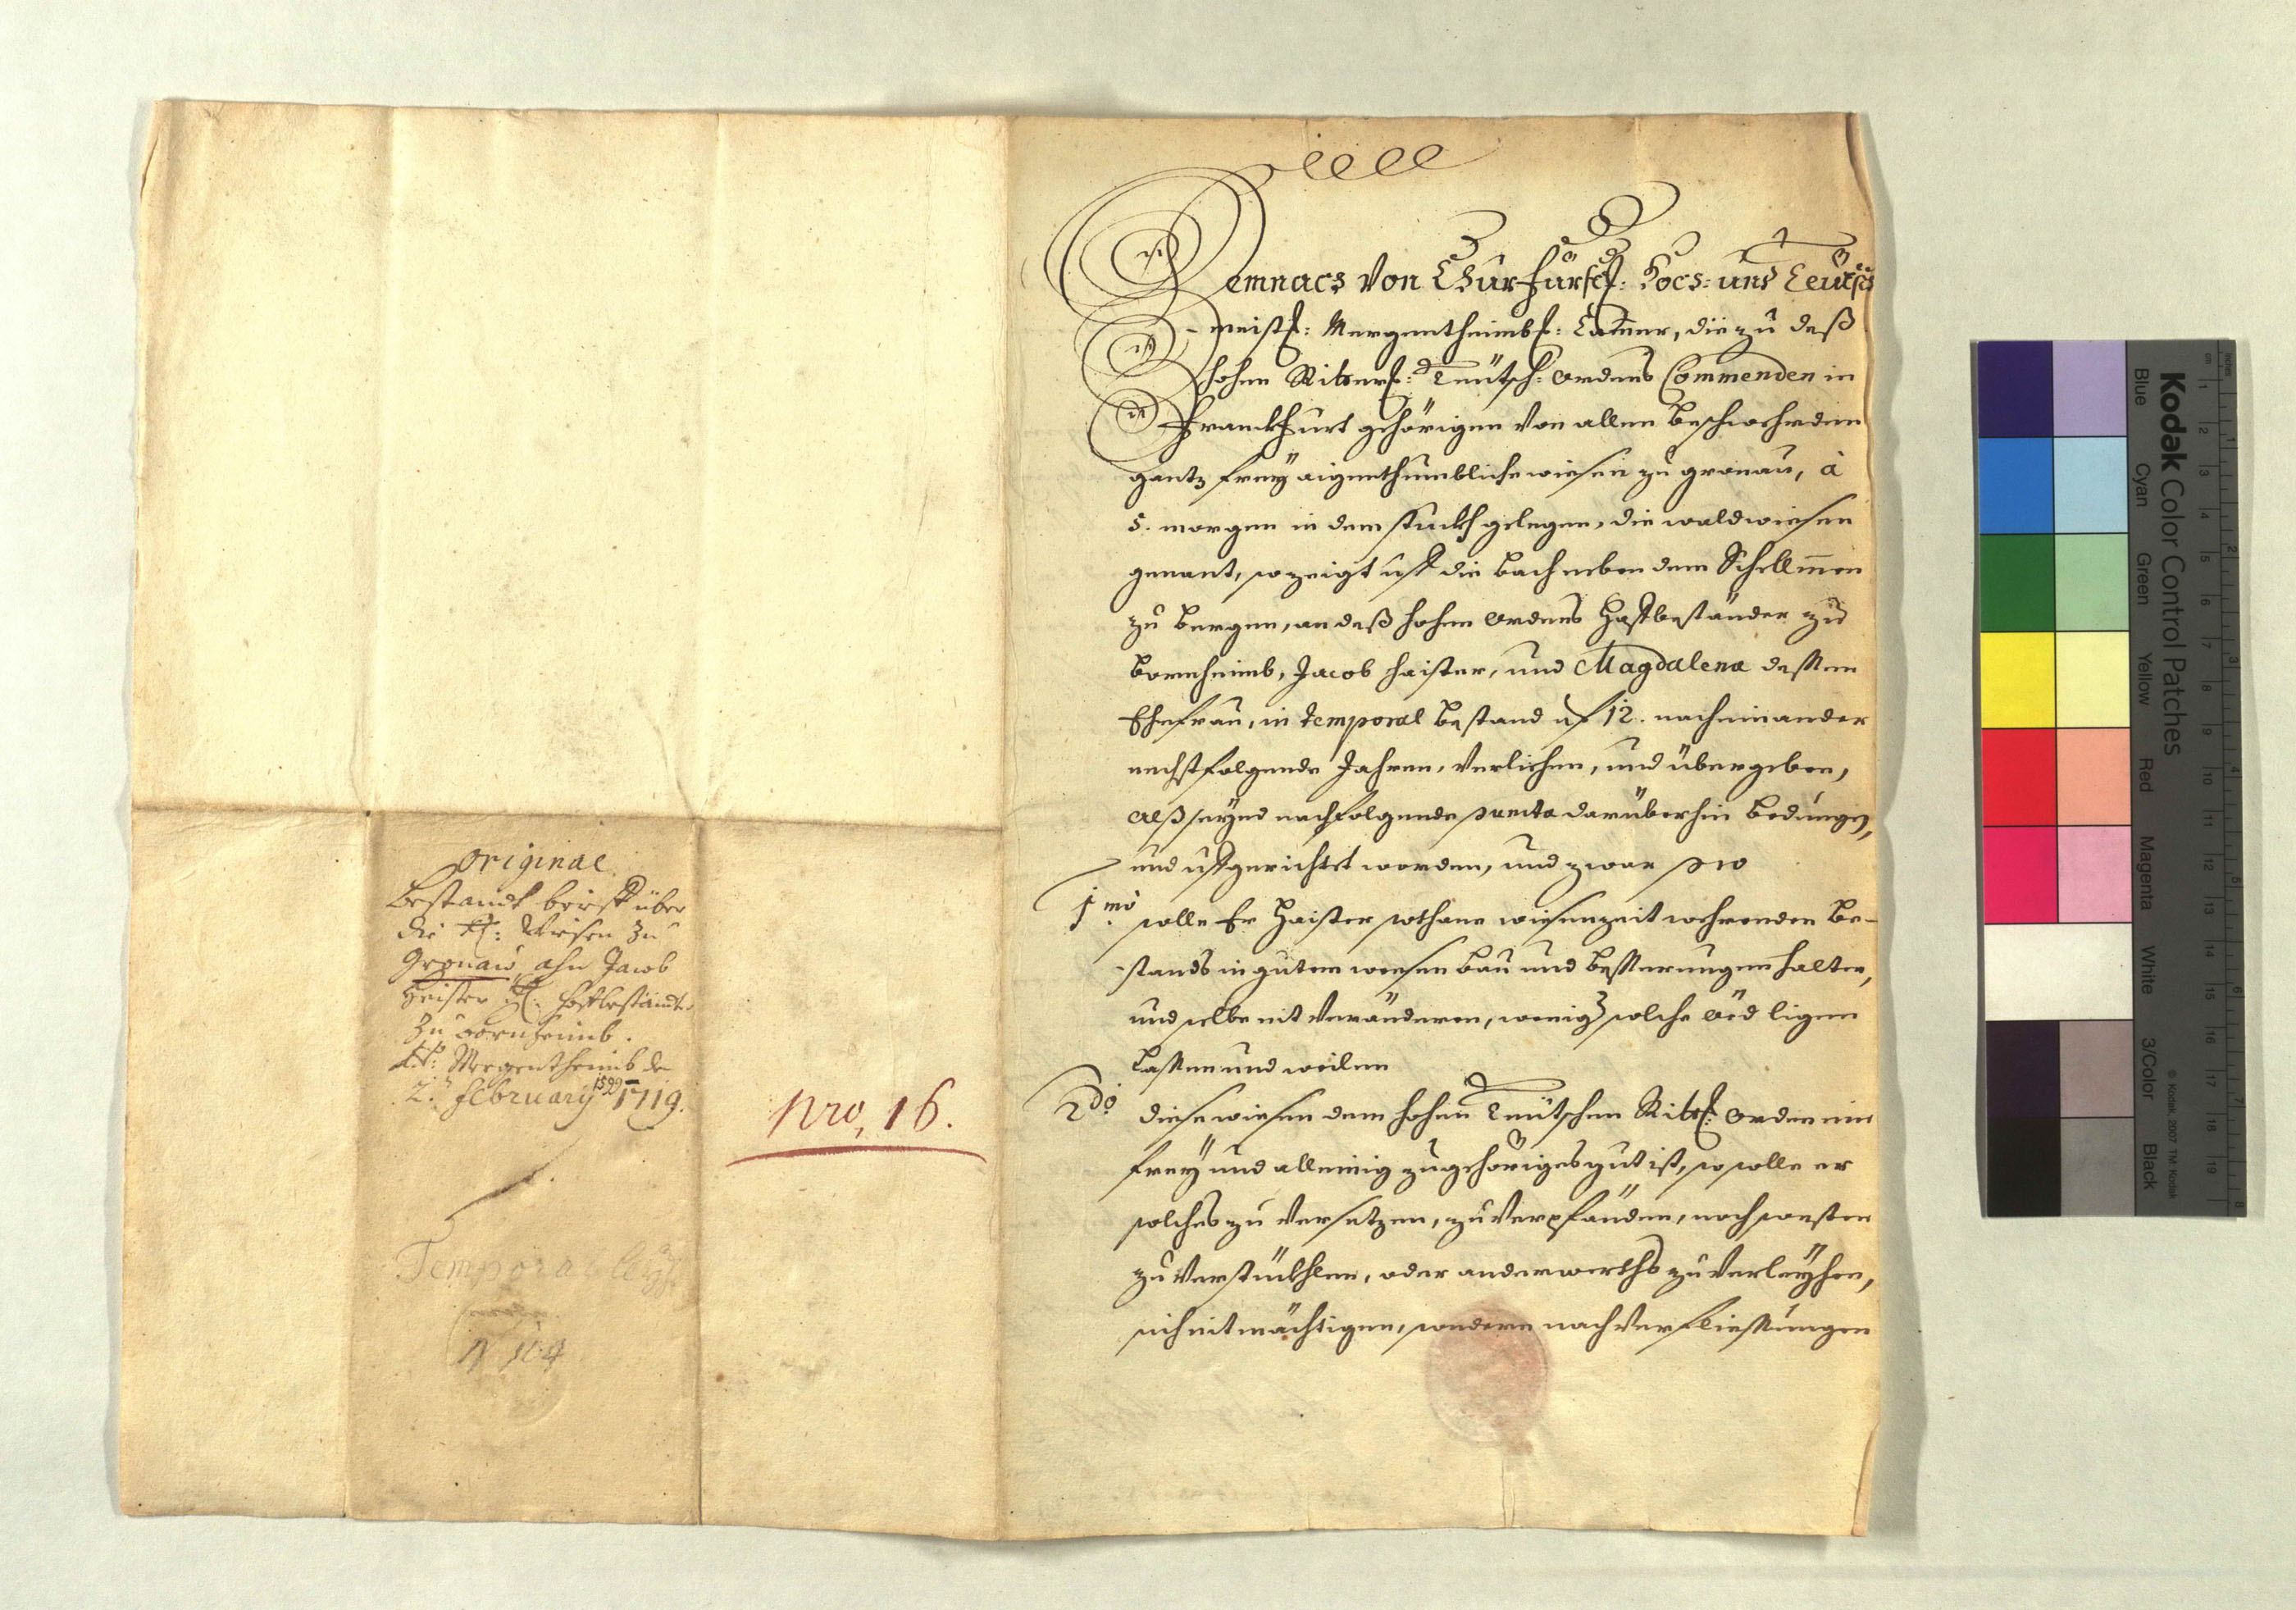 Original
Bestandt brieff über
die H: Wiesen zu
Gronau, ahn Jacob
Heister H: Hoffbeständt.
zu Bornheimb.
Mergentheimb de
2.t February 1719.
Temporal leyh
N 104
Nro, 16.
Demnach Von Churfürstl: Hoch= und Teutsch
-meistl: Mergentheimbl: Cammer, die zu deß
hohen Ritterl: Teütsch: Ordens Commenden in
Franckfurt gehörigen Von allen beschwehrden
gantz freÿ aigenthumbliche wiesen zu gronau, à
5. morgen in dem stuckh gelegen, die waldwiesen
genant, so zeigt uff die Bach neben dem Schellmen
zu Bergen, an deß hohen Ordens Hoffbeständer zu
Bornheimb, Jacob Haister, und Magdalena dessen
Ehefrau, in temporal Bestand uf 12. nacheinander
nechstfolgende Jahren, Verliehen, und übergeben,
Alß seÿnd nachfolgende puncta darüberhin Bedungen,
und uffgerichtet worden, und zwar pro
1mo. solle Er Haister sothane wiesen zeit wehrenden Be-
-stands in gutem wesen bau und besserungen halten,
und selbe nit Veränderen, wenig solche öed ligen
lassen und weilen
2do. diese wiesen dem hohen Teütschen Rittl: Orden ein
freÿ und alleinig zugehöriges gut ist, so solle er
solches zu Versetzen, zu Verpfänden, noch sonsten
zu Verstückhlen, oder anderwerths zu Verleÿhen,
sich nit mächtigen, sondern nach Verfliessungen
Kodak Color Control Patches
Blue Cyan Green Yellow Red Magenta White 3/Color Black
© Kodak, 2007 TM: Kodak